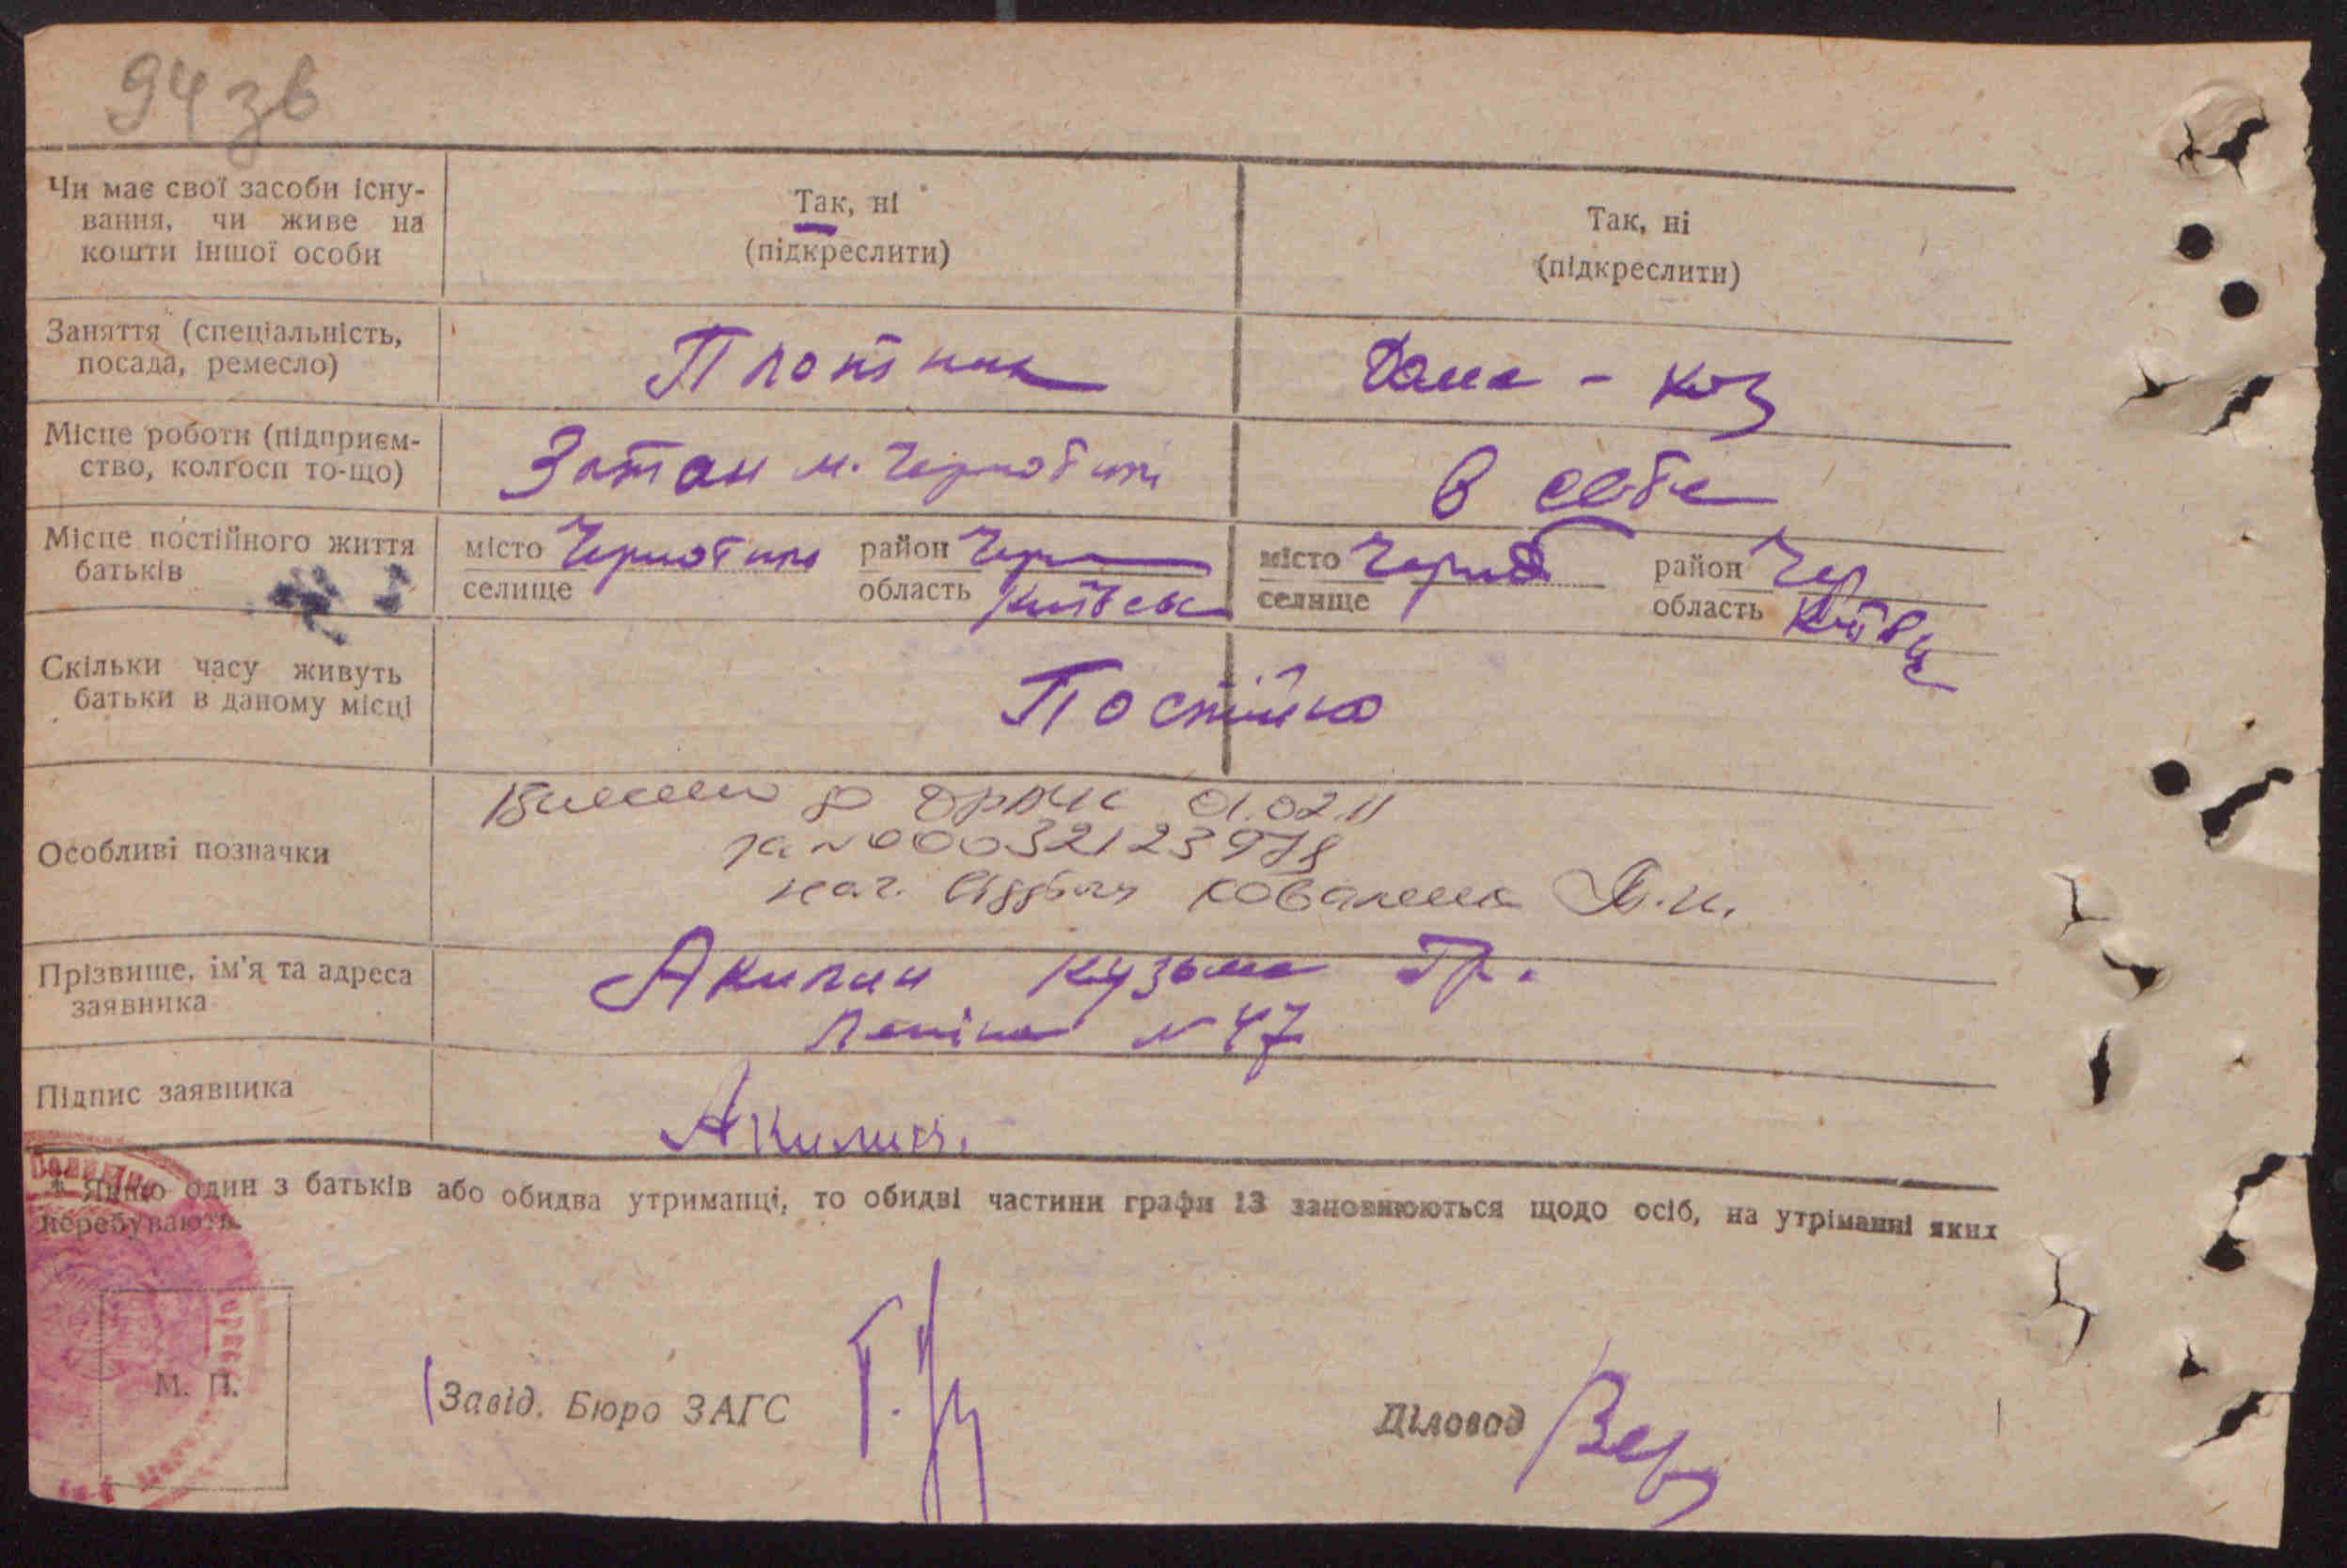 94 зв
Чи має свої засоби існу-
вання, чи живе на
кошти іншої особи
Так, ні
(підкреслити)
Так, ні
(підкреслити)
Заняття (спеціальність,
посада, ремесло)
Плотник
Дома - хоз
Місце роботи (підприєм-
ство, колгосп то-що)
Затон м. Чернобиль
в себе
Місце постійного життя
батьків
місто Чернобиль район Чер
селище область Київськ
місто Черноб район Чер
селище область Київ
Скільки часу живуть
батьки в даному місці
Постійно
Особливі позначки
до ДРАЦС 01.02.11
за №00032123978
нач. відділу Коваленко
Прізвище, ім'я та адреса
заявника
Акилин Кузьма Гр.
Леніна № 47
Підпис заявника
Акилин.
* Якщо один з батьків або обидва утриманці, то обидві частини графи 13 заповнюються щодо осіб, на утріманні яких
перебувають.
М. П.
Завід. Бюро ЗАГС
Діловод